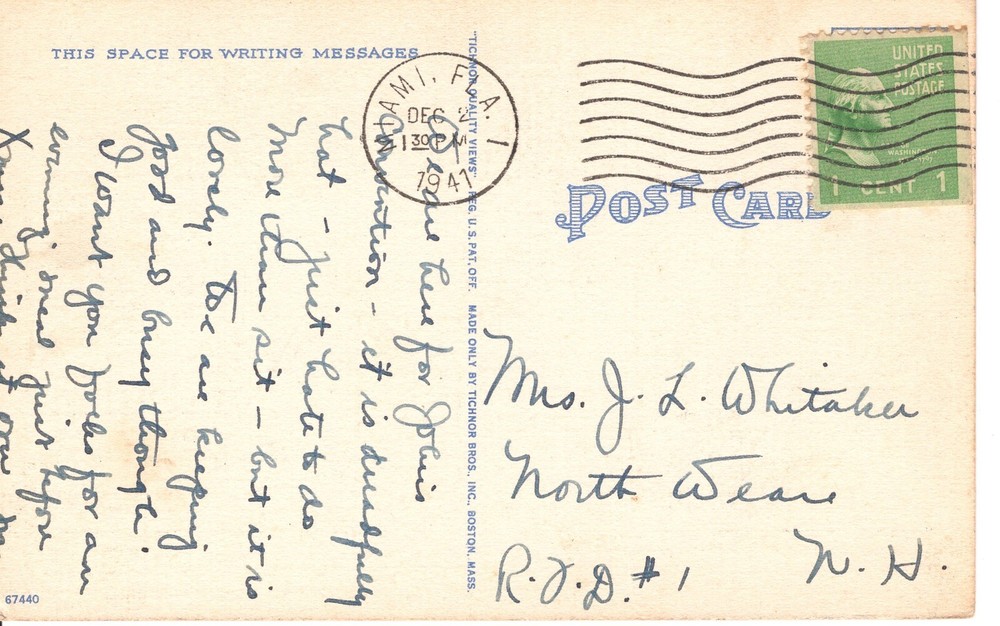 THIS SPACE FOR WRITING MESSAGES
MIAMI, FLA. 1
DEC 2
1 30 PM
1941
UNITED
STATES
POSTAGE
1 CENT 1
POST CARD
"TICHNOR QUALITY VIEWS" REG. U.S. PAT. OFF. MADE ONLY BY TICHNOR BROS., INC., BOSTON, MASS.
are here for John's
Convention - it is dreadfully
hot - just hate to do
more than sit - but it is
lovely. We are keeping
good and busy though.
I want you folks for an
evening meal just before
Xmas, think it over
Mrs. J. L. Whitaker
North Weare
R.F.D. #1 N. H.
67440